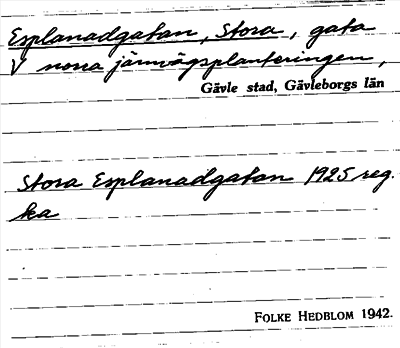 Esplanadgatan, Stora, gata
V norra järnvägsplanteringen,
Gävle stad, Gävleborgs län
Stora Esplanadgatan 1925 reg.
ka
FOLKE HEDBLOM 1942.